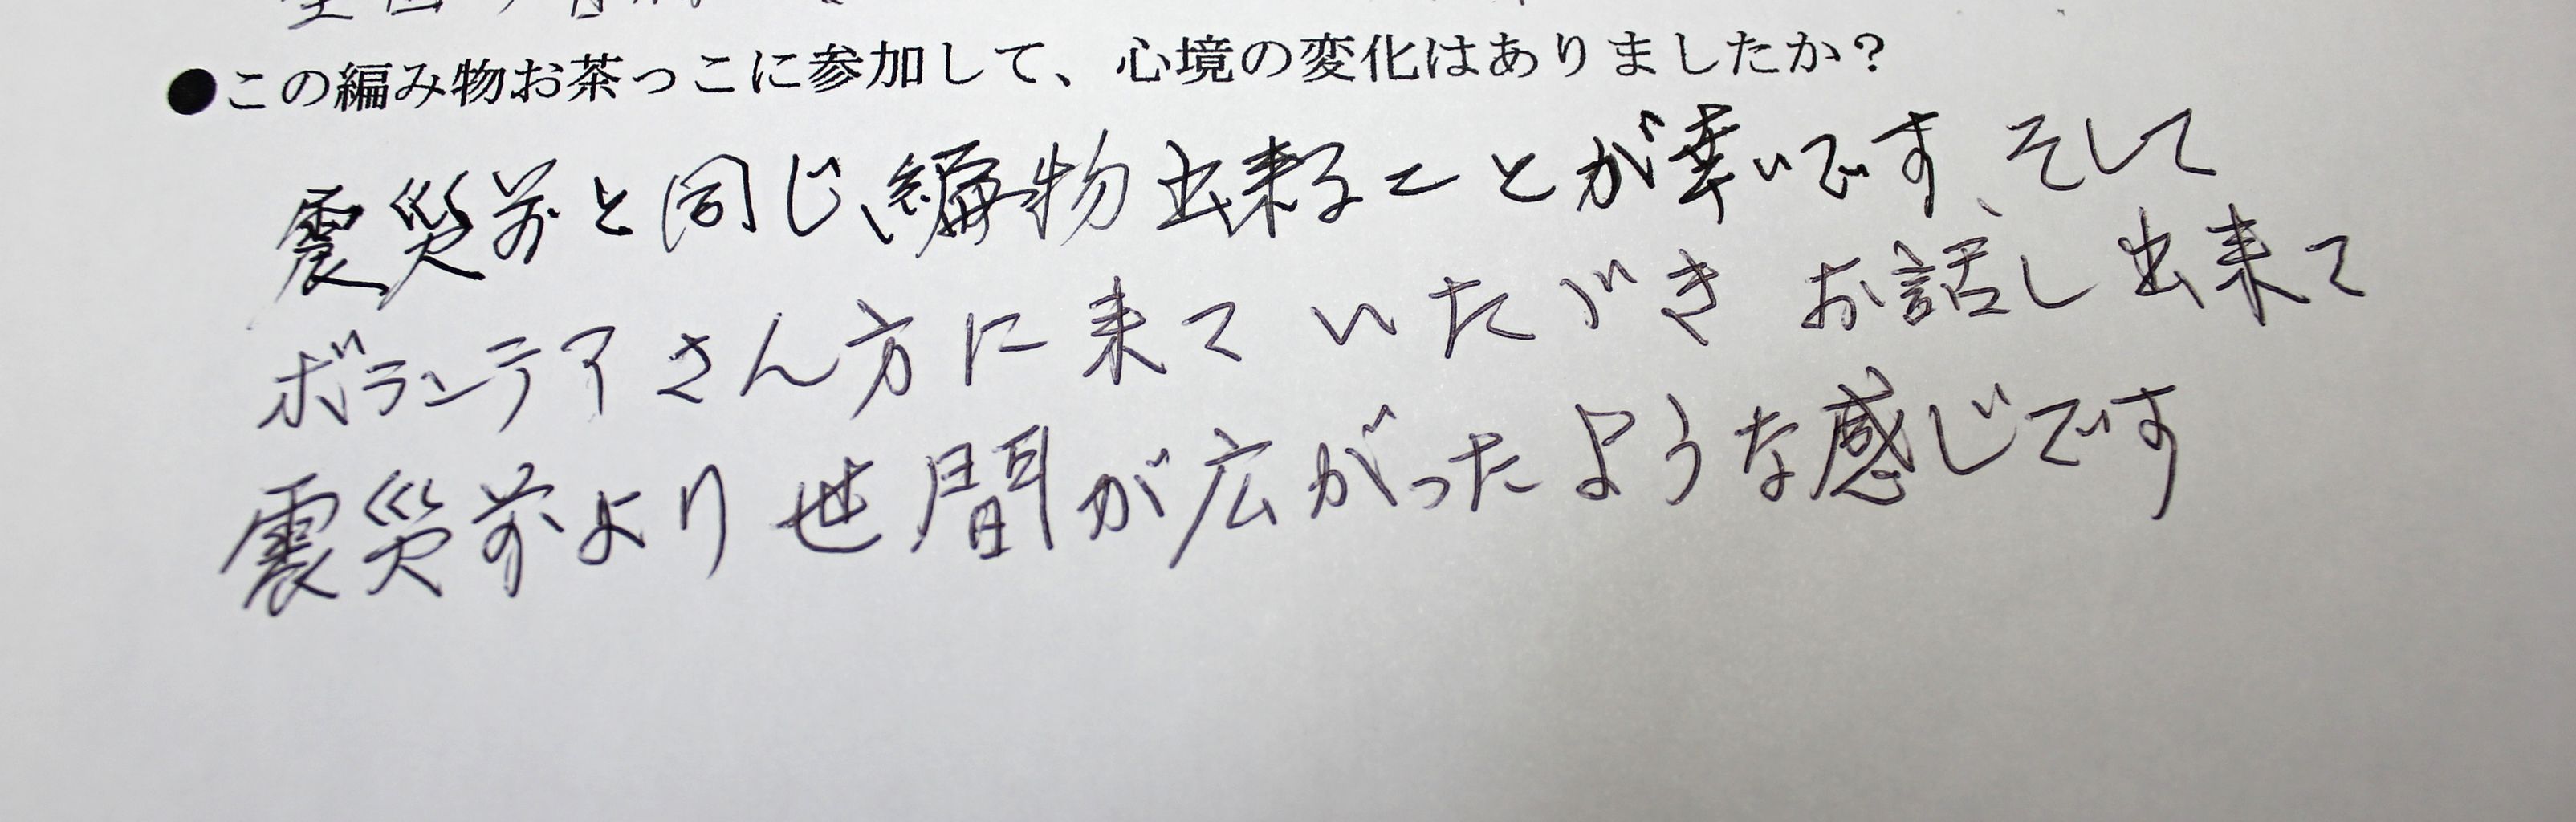 ●この編み物お茶っこに参加して、心境の変化はありましたか？
震災前と同じ、編物出来ることが幸いです、そして
ボランテアさん方に来ていただき お話し出来て
震災前より世間が広がったような感じです